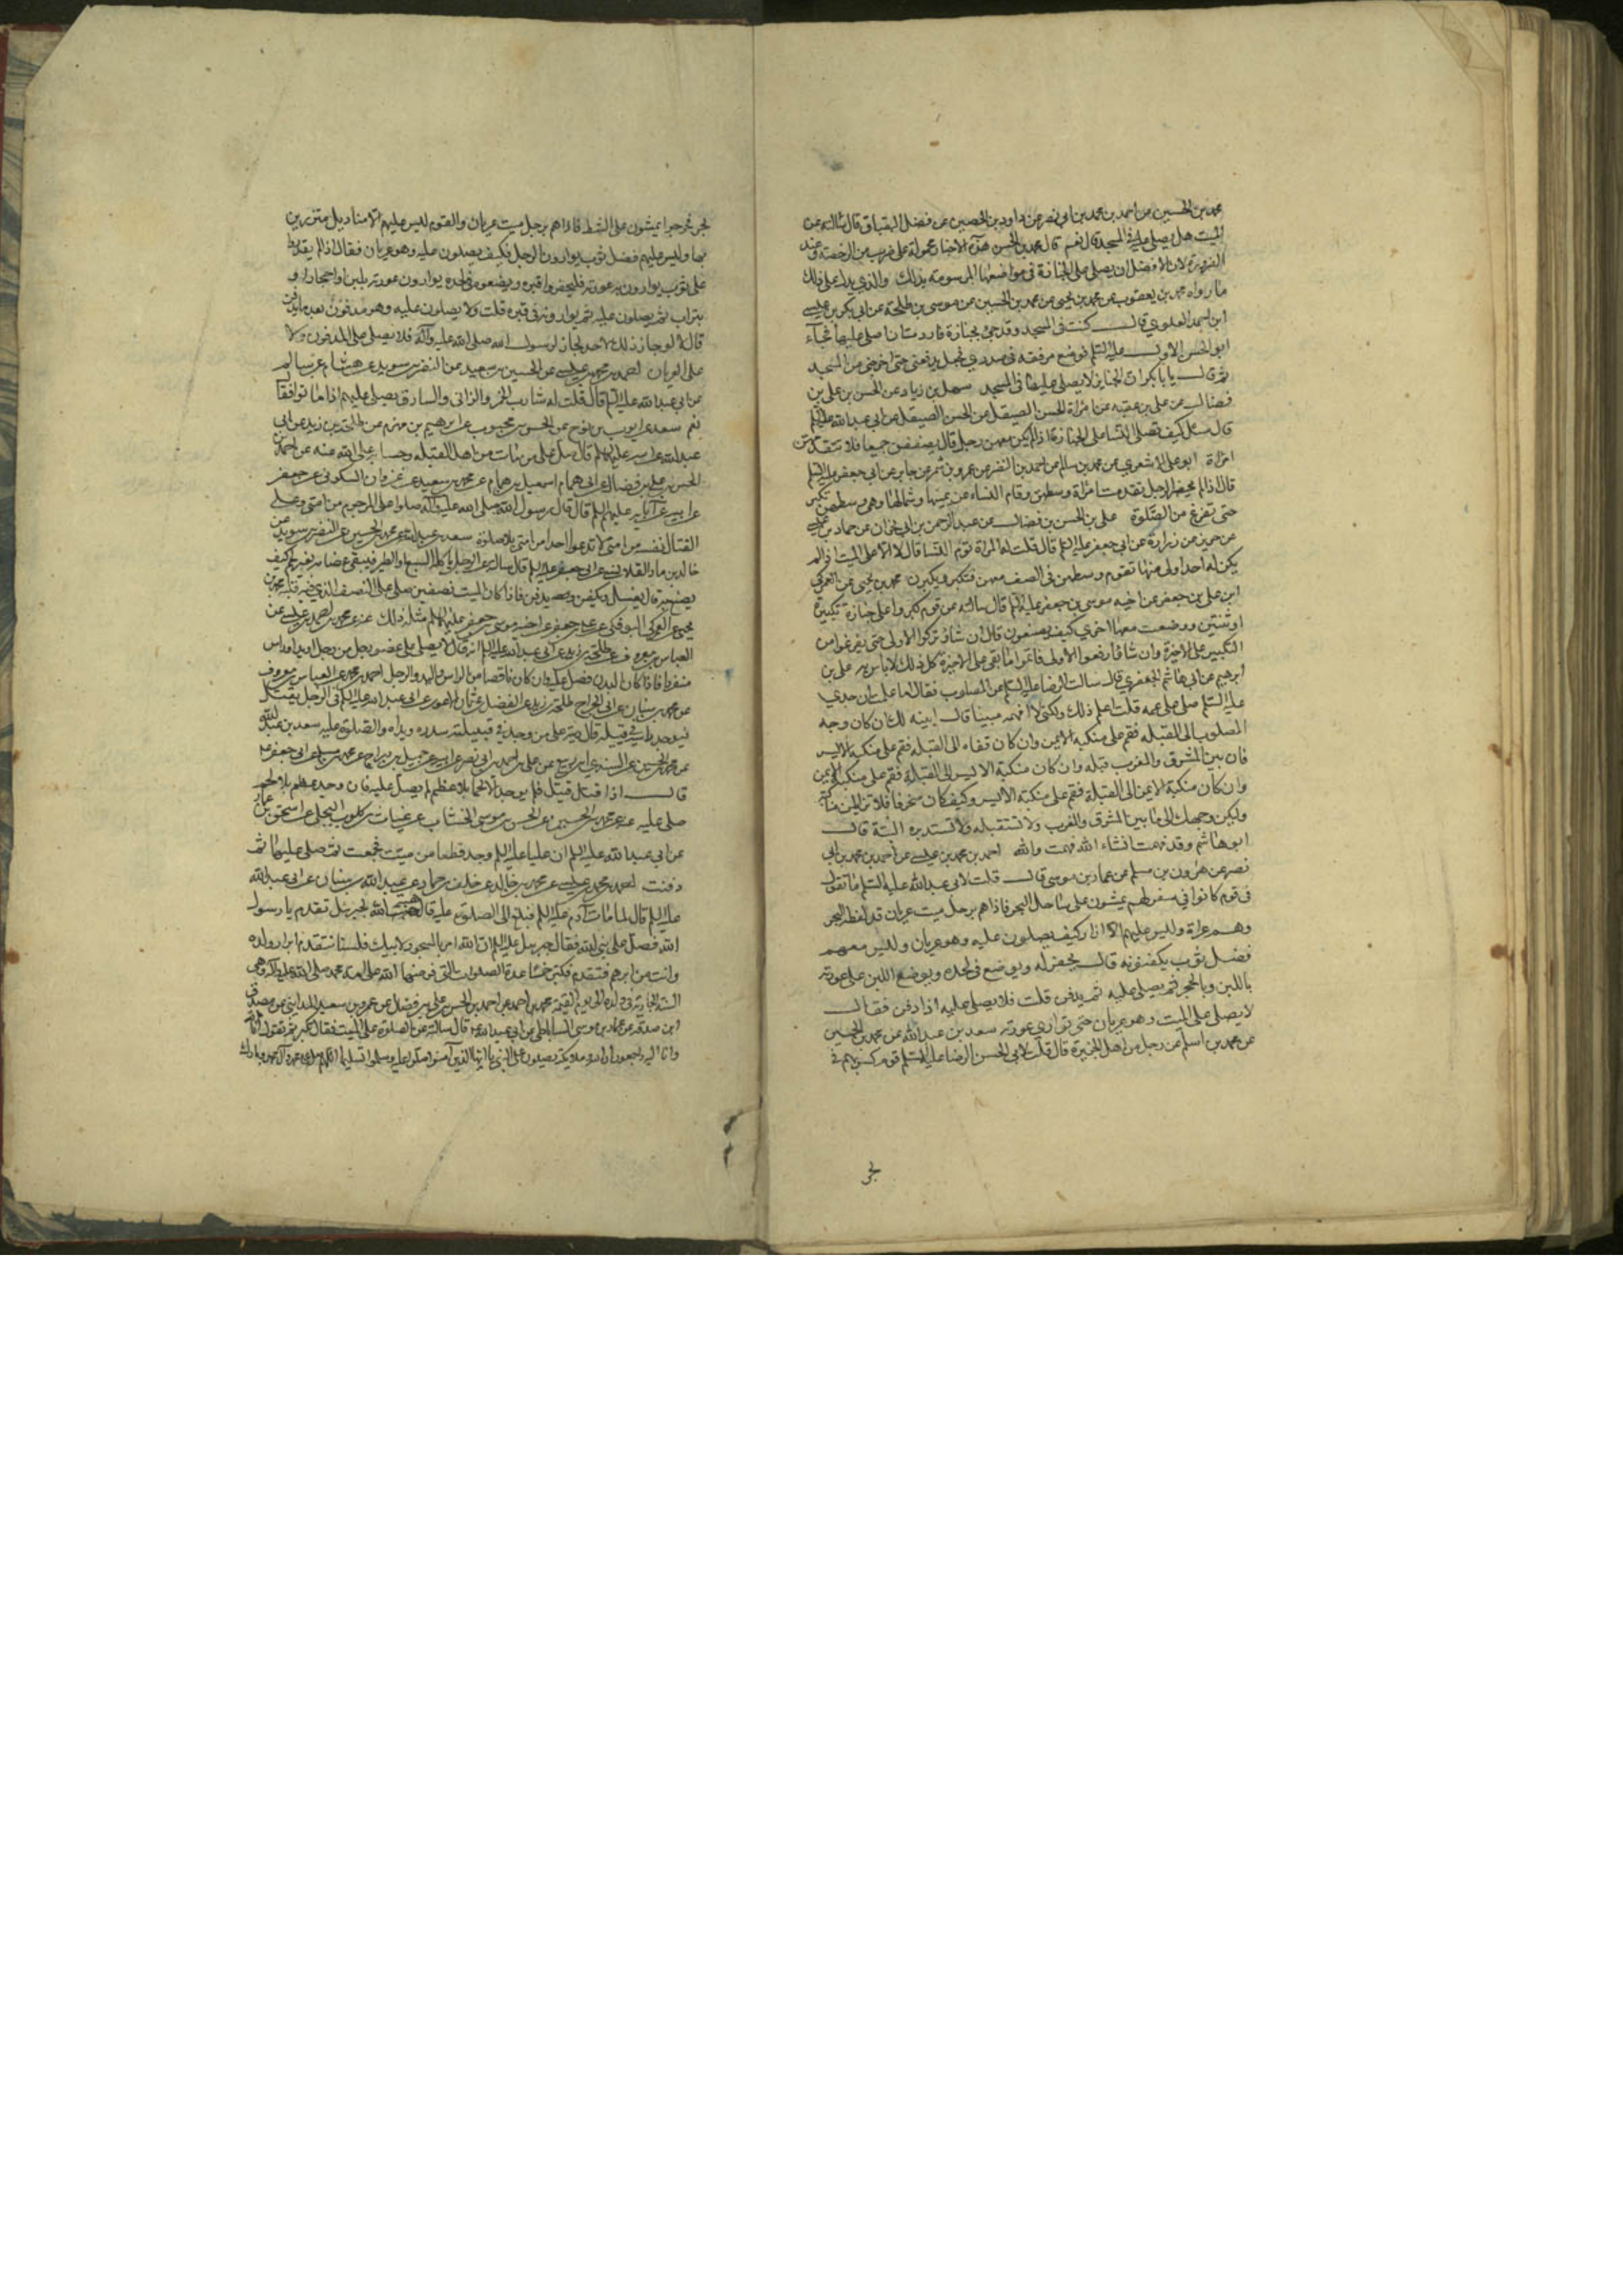 محمد بن الحسين عن احمد بن محمد بن ابي نصر عن داود بن الحصين عن فضل البقباق قال سالته عن
الميت هل يصلى عليه في المسجد قال نعم قال محمد بن الحسن هذه الاخبار محمولة على ضرب من الرخصة وعند
الضرورة لان الافضل ان يصلى على الجنازة في مواضعها المرسومة بذلك والذي يدل على ذلك
ما رواه محمد بن يعقوب عن محمد بن يحيى عن محمد بن الحسين عن موسى بن طلحة عن ابي بكر بن عيسى
ابن احمد العلوي قال كنت في المسجد وقد جئ بجنازة فاردت ان اصلي عليها فجاء
ابو الحسن الاول عليه السلم فوضع مرفقه في صدري فجعل يدفعني حتى اخرجني من المسجد
ثم قال يا با بكر ان الجنايز لا يصلى عليها في المسجد سهل بن زياد عن الحسن بن علي بن
فضال عن علي بن عقبه عن امرأة الحسن الصيقل عن الحسن الصيقل عن ابي عبد الله عليه السلم
قال سئل كيف تصلى النساء على الجنازة اذا لم يكن معهن رجل قال يصففن جميعا فلا تتقدمهن
امرأة ابو علي الاشعري عن محمد بن سالم عن احمد بن النضر عن عمرو بن شمر عن جابر عن ابي جعفر عليه السلم
قال اذا لم يحضر الرجل تقدمت امرأة وسطهن وقام النساء عن يمينها وشمالها وهي وسطهن تكبر
حتى تفرغ من الصلوة علي بن الحسن بن فضال عن عبد الرحمن بن ابي نجران عن حماد بن عيسى
عن حريز عن زرارة عن ابي جعفر عليه السلم قال قلت له المرأة تؤم النساء قال لا الا على الميت اذا لم
يكن احد اولى منها تقوم وسطهن في الصف معهن فتكبر ويكبرن محمد بن يحيى عن العمركي
ابن علي بن جعفر عن اخيه موسى بن جعفر عليه السلم قال سالته عن قوم كبروا على جنازة تكبيرة
او ثنتين ووضعت معها اخرى كيف يصنعون قال ان شاؤا تركوا الاولى حتى يفرغوا من
التكبير على الاخيرة وان شاؤا رفعوا الاولى فاتموا ما بقي على الاخيرة كل ذلك لا باس به علي بن
ابرهيم عن ابي هاشم الجعفري قال سالت الرضا عليه السلم عن المصلوب فقال اما علمت ان جدي
عليه السلم صلى على عمه قلت اعلم ذلك ولكني لا افهمه مبينا قال ابينه لك ان كان وجه
المصلوب الى القبله فقم على منكبه الايمن وان كان قفاه الى القبله فقم على منكبه الايسر
فان بين المشرق والمغرب قبله وان كان منكبه الايسر الى القبلة فقم على منكبه الايمن
وان كان منكبه الايمن الى القبلة فقم على منكبه الايسر وكيف كان منحرفا فلا تزايلن مناكبه
وليكن وجهك الى ما بين المشرق والمغرب ولا تستقبله ولا تستدبره البتة قال
ابو هاشم وقد فهمت انشاء الله فهمت والله احمد بن محمد بن عيسى عن احمد بن محمد بن ابي
نصر عن هرون بن مسلم عن عمار بن موسى قال قلت لابي عبد الله عليه السلم ما تقول
في قوم كانوا في سفر لهم يمشون على ساحل البحر فاذا هم برجل ميت عريان قد لفظه البحر
وهم عراة وليس عليهم الا ازار كيف يصلون عليه وهو عريان وليس معهم
فضل ثوب يكفنونه قال يحفر له ويوضع في لحده ويوضع اللبن على عورته
باللبن وبالحجر ثم يصلى عليه ثم يدفن قلت فلا يصلى عليه اذا دفن فقال
لا يصلى على الميت وهو عريان حتى توارى عورته سعد بن عبد الله عن محمد بن الحسين
عن محمد بن اسلم عن رجل من اهل الجزيرة قال قلت لابي الحسن الرضا عليه السلم قوم كسر بهم في
بحر فخرجوا يمشون على الشط فاذا هم برجل ميت عريان والقوم ليس عليهم الا مناديل متزرين
بها وليس عليهم فضل ثوب يوارون الرجل فكيف يصلون عليه وهو عريان فقال اذا لم يقدروا
على ثوب يوارون به عورته فليحفروا قبره ويضعوه في لحده يوارون عورته بلبن او احجار او
بتراب ثم يصلون عليه ثم يوارونه في قبره قلت ولا يصلون عليه وهو مدفون بعد ما يدفن
قال لا لو جاز ذلك لاحد لجاز لرسول الله صلى الله عليه وآله فلا يصلى على المدفون ولا
على العريان احمد بن محمد بن عيسى عن الحسين بن سعيد عن النضر بن سويد عن هشام بن سالم
عن ابي عبد الله عليه السلم قال قلت له شارب الخمر والزاني والسارق يصلى عليهم اذا ماتوا فقال
نعم سعد عن ايوب بن نوح عن الحسن بن محبوب عن ابرهيم بن مهزم عن طلحة بن زيد عن ابي
عبد الله عن ابيه عليهما السلم قال صل على من مات من اهل القبله وحسابه على الله عنه عن احمد بن
الحسن بن علي بن فضال عن ابي همام اسمعيل بن همام عن محمد بن سعيد بن غزوان السكوني عن جعفر
عن ابيه عن آبائه عليهم السلم قال قال رسول الله صلى الله عليه وآله صلوا على المرجوم من امتي وعلى
القتال نفسه من امتي لا تدعوا احدا من امتي بلا صلوة سعد بن عبد الله عن محمد بن الحسين عن النضر بن سويد عن
خالد بن ماد القلانسي عن ابي جعفر عليه السلم قال سالته عن الرجل ياكله السبع او الطير فيبقى عظامه بغير لحم كيف
يصنع به قال يغسل ويكفن ويصلى عليه ويدفن فاذا كان الميت نصفين صلى على النصف الذي فيه قلبه محمد بن
يحيى عن العمركي البوفكي عن علي بن جعفر عن اخيه موسى بن جعفر عليهما السلم مثل ذلك عنه عن محمد بن احمد بن علي عن
العباس بن معروف عن طلحة بن زيد عن ابي عبد الله عليه السلم انه قال لا يصلى على عضو رجل من رجل او يد او راس
منفردا فاذا كان البدن فصل عليه وان كان ناقصا من الراس واليد والرجل احمد بن محمد عن العباس بن معروف
عن محمد بن سنان عن ابي الجراح طلحة بن زيد عن الفضل بن عثمان الاعور عن ابي عبد الله عليه السلم في الرجل يقتل
فيوجد راسه في قبيلة قال ديته على من وجد في قبيلته صدره ويداه والصلوة عليه سعد بن عبد الله
قال اذا قتل قتيل فلم يوجد الا لحم بلا عظم لم يصل عليه فان وجد عظم بلا لحم
صلى عليه عنه عن محمد بن الحسين عن الحسن بن موسى الخشاب عن غياث بن كلوب البجلي عن اسحق بن عمار
عن ابي عبد الله عليه السلم ان عليا عليه السلم وجد قطعا من ميت فجمعت ثم صلى عليها ثم
دفنت احمد بن محمد بن عيسى عن محمد بن خالد عن خلف بن حماد عن عبد الله بن سنان عن ابي عبد الله
عليه السلم قال لما مات آدم عليه السلم فبلغ الى الصلوة عليه قال هبة الله لجبرئيل تقدم يا رسول
الله فصل على نبي الله فقال جبرئيل عليه السلم ان الله امر بالسجود لابيك فلسنا نتقدم ابرار ولده
وانت من ابرهم فتقدم فكبر خمسا عدة الصلوات التي فرضها الله على امة محمد صلى الله عليه وآله وهي
السنة الجارية في ولده الى يوم القيمة محمد بن احمد عن احمد بن الحسن بن علي بن فضال عن عمرو بن سعيد المدايني عن مصدق
ابن صدقه عن عمار بن موسى الساباطي عن ابي عبد الله ع قال سالته عن الصلوة على الميت فقال تكبر ثم تقول انا لله
وانا اليه راجعون ان الله وملايكته يصلون على النبي يا ايها الذين آمنوا صلوا عليه وسلموا تسليما اللهم صل على محمد وآل محمد وبارك